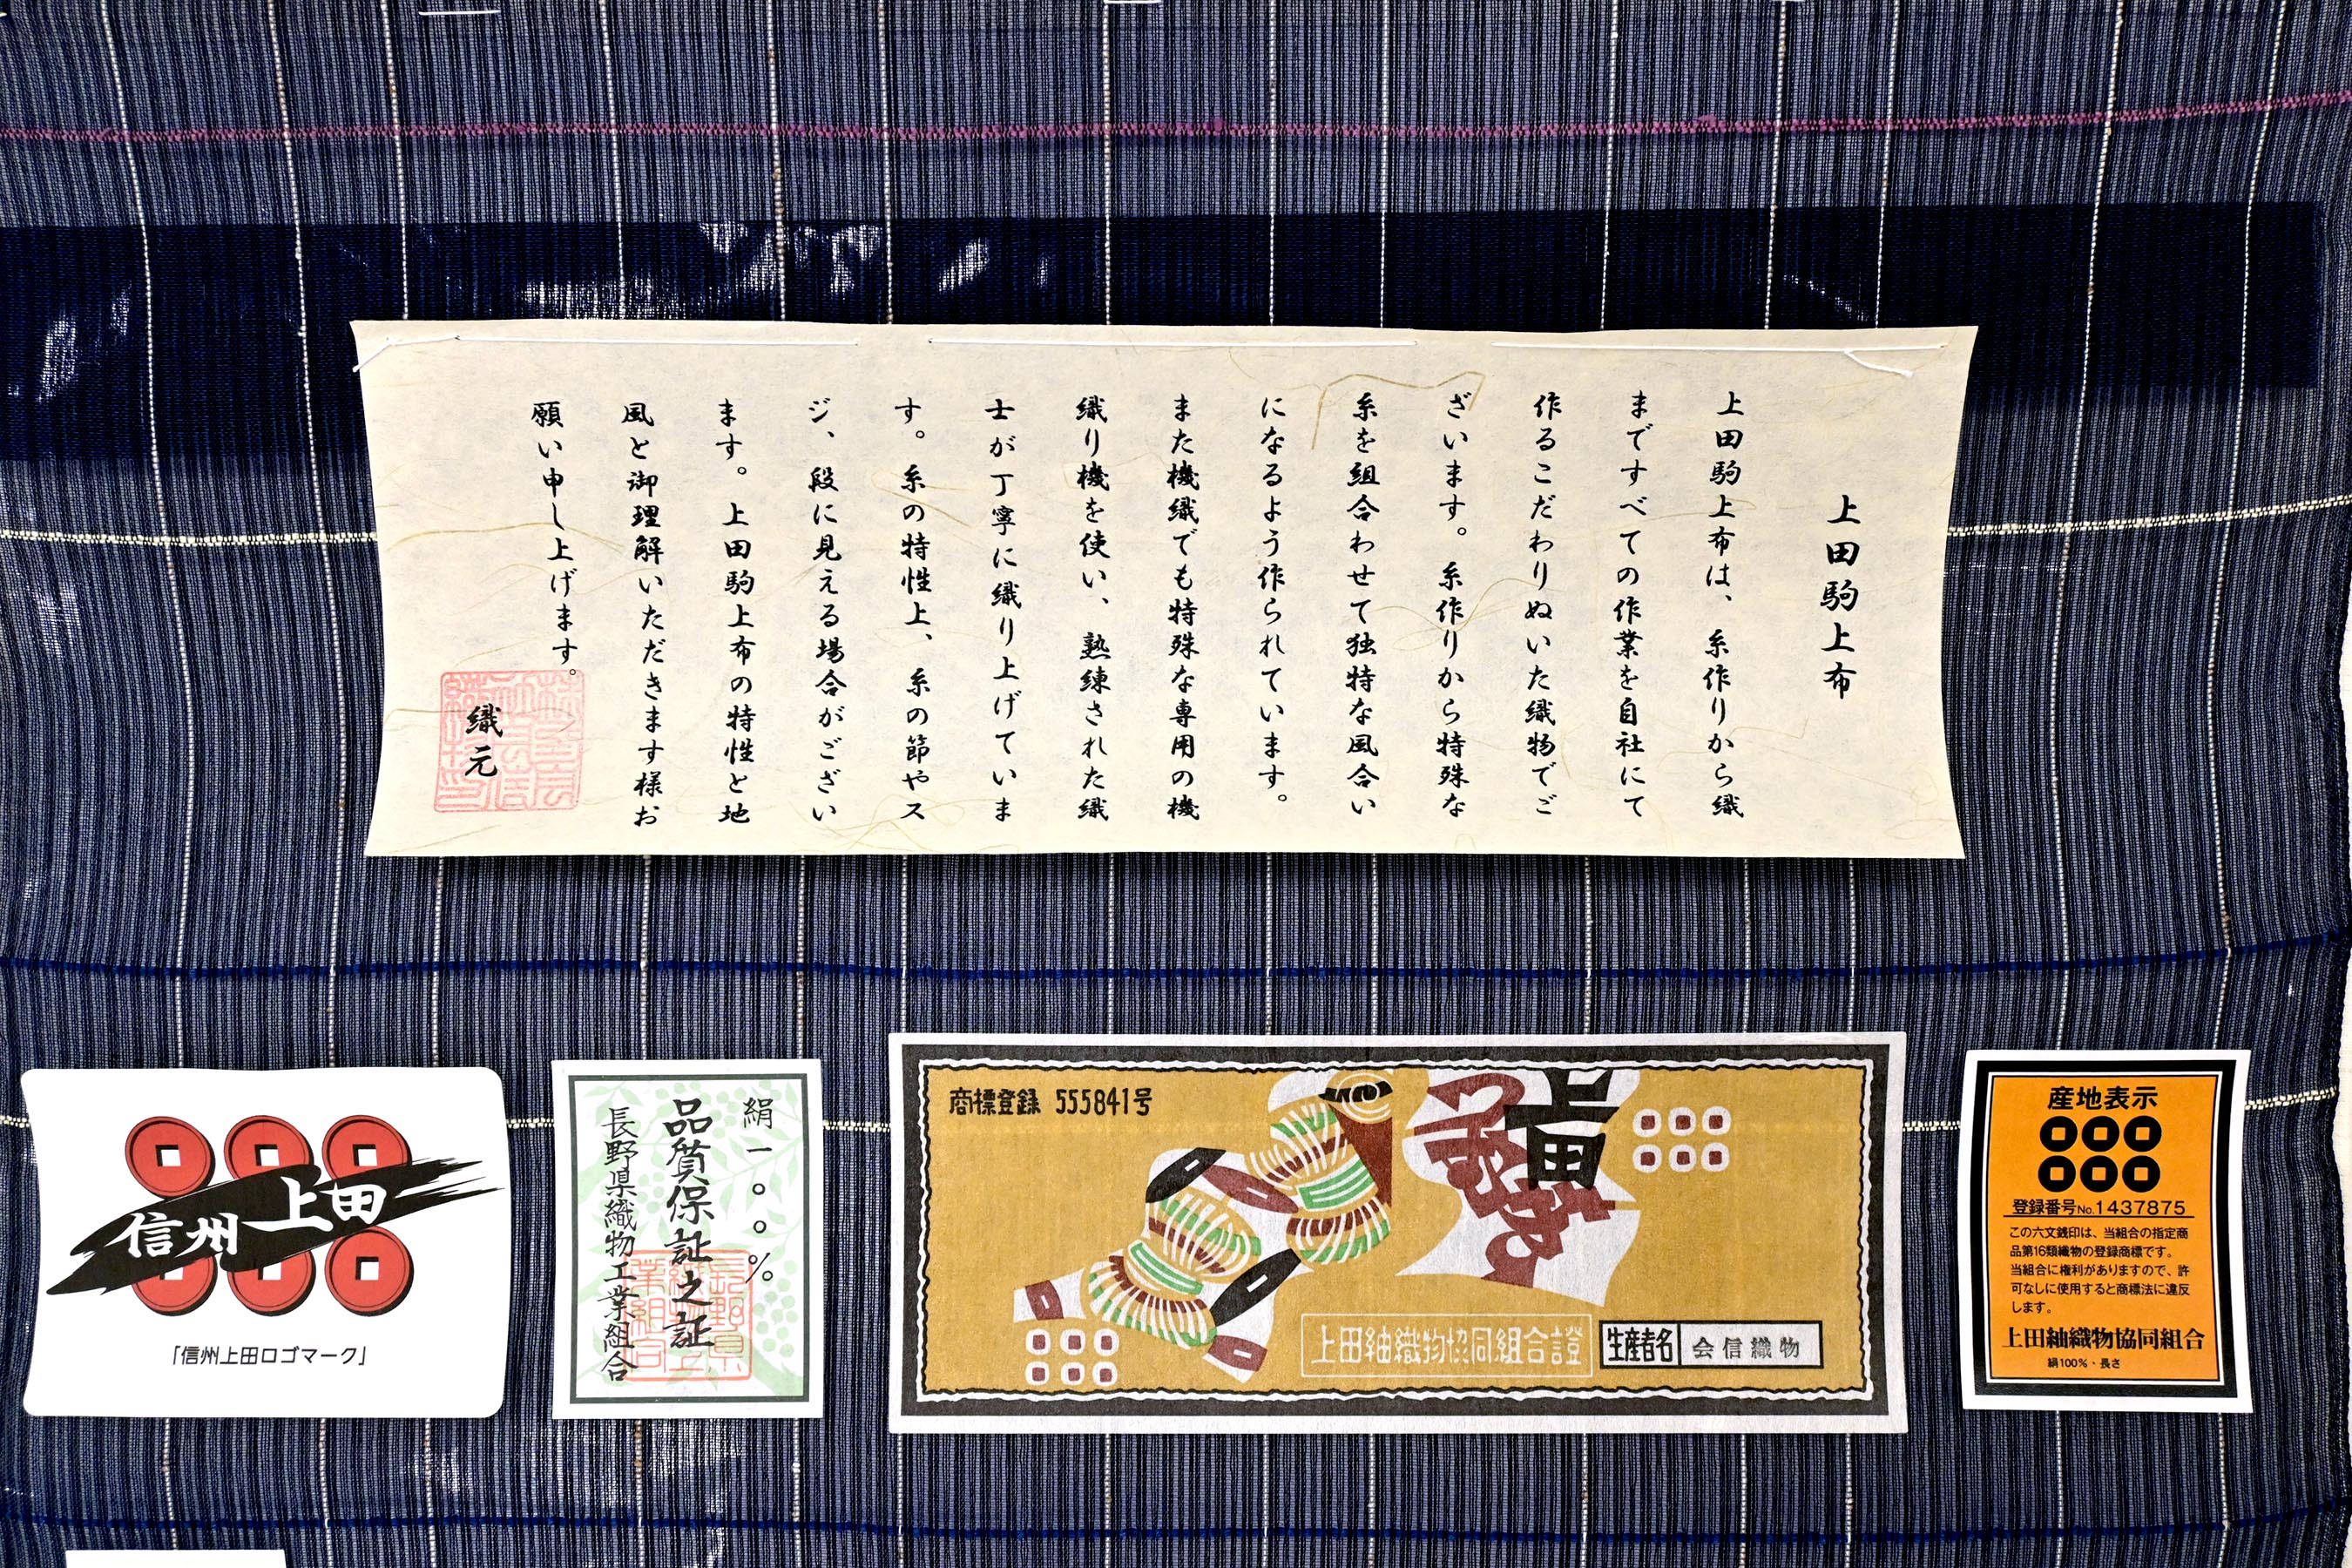 上田駒上布
上田駒上布は、糸作りから織
まですべての作業を自社にて
作るこだわりぬいた織物でご
ざいます。糸作りから特殊な
糸を組合わせて独特な風合い
になるよう作られています。
また機織でも特殊な専用の機
織り機を使い、熟練された織
士が丁寧に織り上げていま
す。糸の特性上、糸の節やス
ジ、段に見える場合がござい
ます。上田駒上布の特性と地
風と御理解いただきます様お
願い申し上げます。
織元
信州上田
「信州上田ロゴマーク」
絹一〇〇%
品質保証之証
長野県織物工業組合
商標登録 555841号
上田
上田紬織物協同組合證
生産者名 会信織物
産地表示
登録番号No.1437875
この六文銭印は、当組合の指定商
品第16類織物の登録商標です。
当組合に権利がありますので、許
可なしに使用すると商標法に違反
します。
上田紬織物協同組合
絹100%・長さ